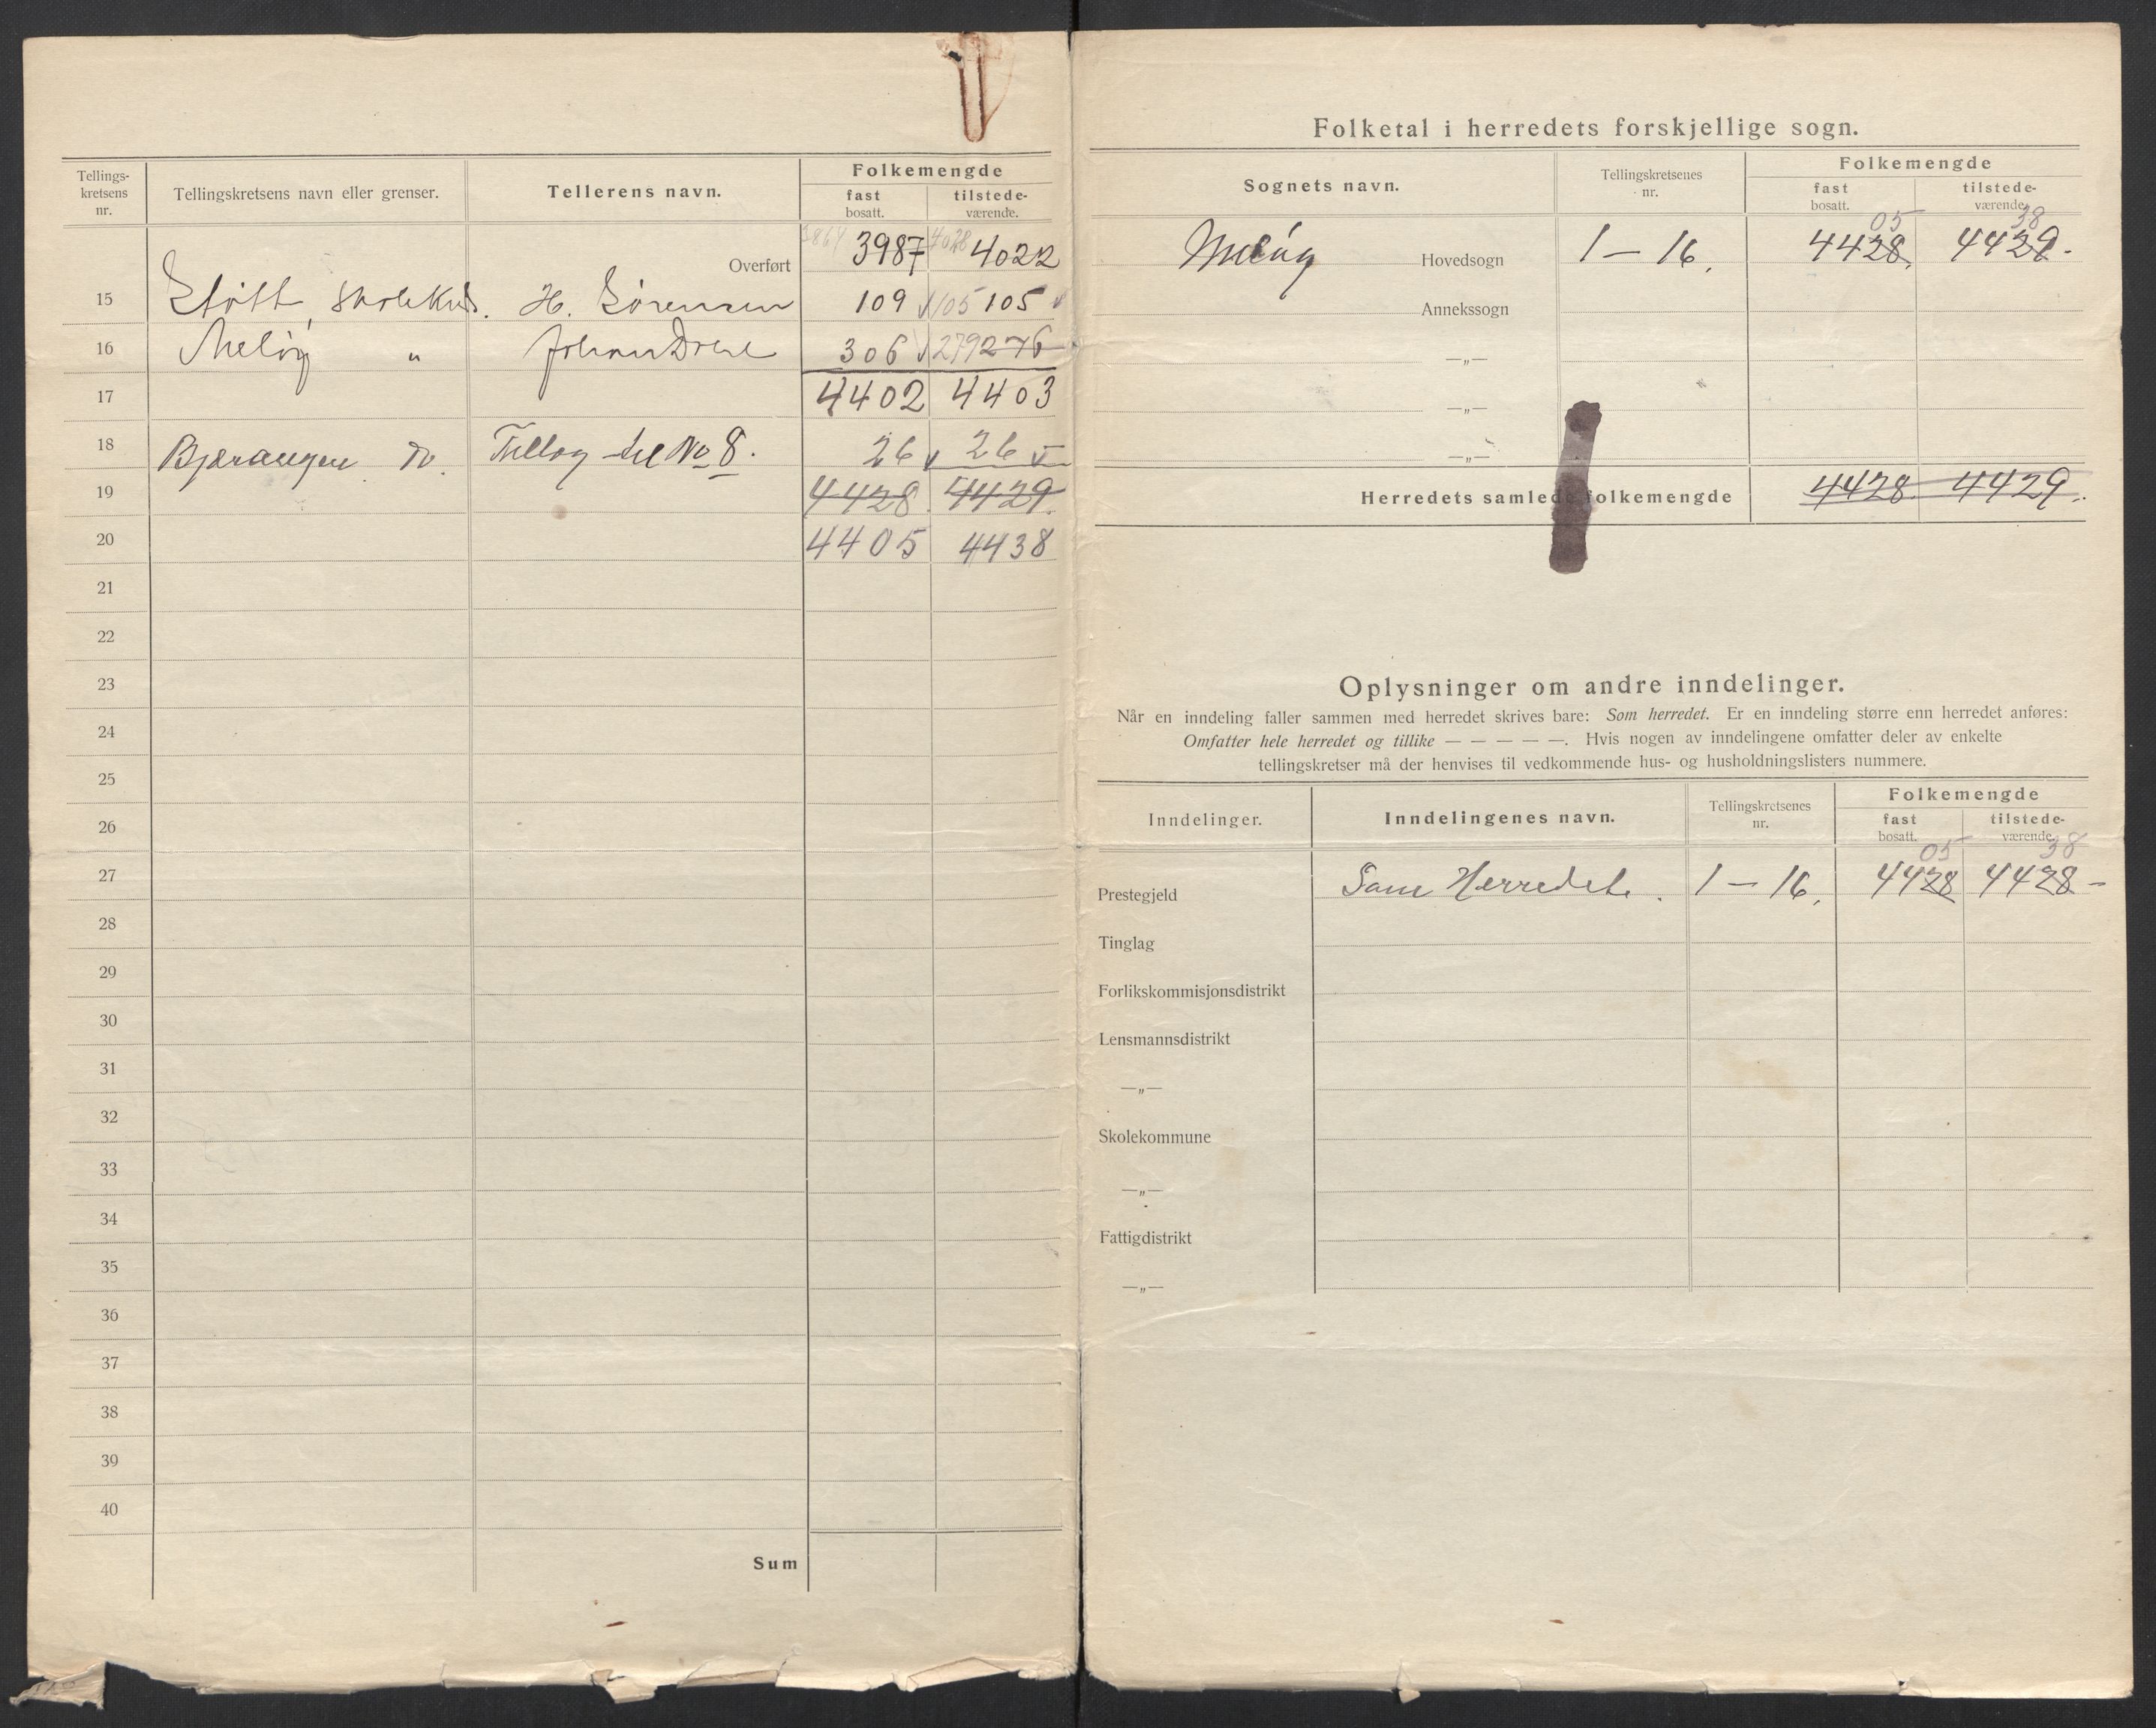 Tellings-
kretsens
nr.
Tellingskretsens navn eller grenser.
Tellerens navn.
Folkemengde
fast
bosatt.
tilstede-
værende.
Overført 3987 4028 4022
15 Støtt, Skolekreds. H. Sørensen 109 105 105
16 Meløy " Johan 306 279 276
17 4402 4403
18 Bjærangen do. Tillæg til No 8. 26 26
19 4428 4429
20 4405 4438
21
22
23
24
25
26
27
28
29
30
31
32
33
34
35
36
37
38
39
40
Sum
Folketal i herredets forskjellige sogn.
Sognets navn.
Tellingskretsenes
nr.
Folkemengde
fast
bosatt.
tilstede-
værende.
05 38
Meløy Hovedsogn 1 — 16. 4428. 4429.
Annekssogn
—„—
—„—
—„—
Herredets samlede folkemengde 4428. 4429.
Oplysninger om andre inndelinger.
Når en inndeling faller sammen med herredet skrives bare: Som herredet. Er en inndeling større enn herredet anføres:
Omfatter hele herredet og tillike — — — — —. Hvis nogen av inndelingene omfatter deler av enkelte
tellingskretser må der henvises til vedkommende hus- og husholdningslisters nummere.
Inndelinger.
Inndelingenes navn.
Tellingskretsenes
nr.
Folkemengde
fast
bosatt.
tilstede-
værende.
05 38
Prestegjeld Som Herredet. 1 — 16. 4428 4428 -
Tinglag
Forlikskommisjonsdistrikt
Lensmannsdistrikt
—„—
Skolekommune
—„—
Fattigdistrikt
—„—